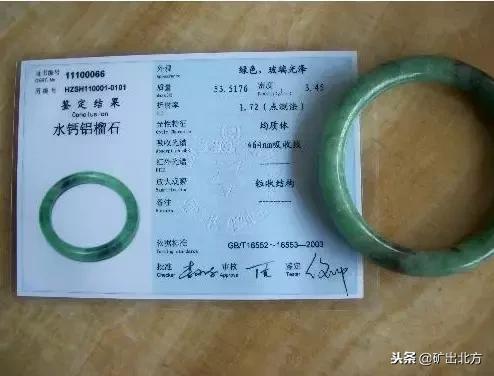 证书编号 11100066
CERT. No
HZSH110001-0101
鉴定结果
Conclusion
水钙铝榴石
外观 绿色、玻璃光泽
质量 53.5176 密度 3.46
折射率 1.72（点测法）
光性特征 均质体
吸收光谱 464nm吸收线
红外光谱
放大观察 粒状结构
备注
依据标准 GB/T16552~16553—2003
Testing standards
批准 审核 鉴定
Checker Approve Tester
头条 @矿出北方